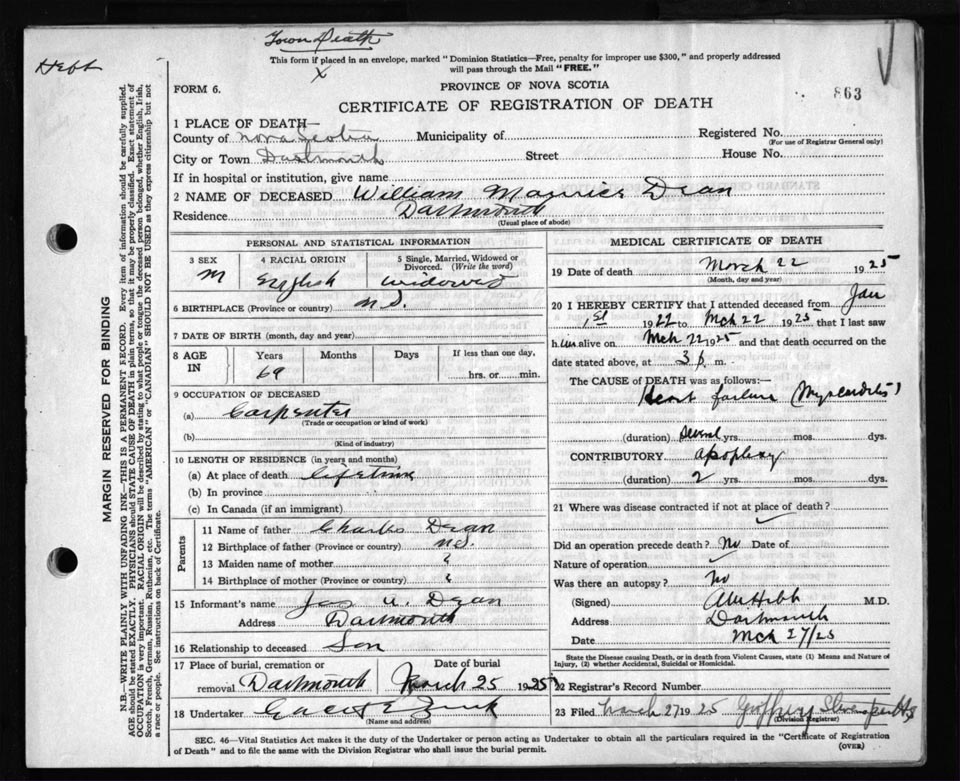 Town Death
Hebb
This form if placed in an envelope, marked "Dominion Statistics—Free, penalty for improper use $300," and properly addressed
will pass through the Mail "FREE."
X
FORM 6.
PROVINCE OF NOVA SCOTIA
863
CERTIFICATE OF REGISTRATION OF DEATH
1 PLACE OF DEATH—
County of Nova Scotia Municipality of Registered No.
(For use of Registrar General only)
City or Town Dartmouth Street House No.
If in hospital or institution, give name
2 NAME OF DECEASED William Maurice Dean
Residence Dartmouth
(Usual place of abode)
PERSONAL AND STATISTICAL INFORMATION
3 SEX 4 RACIAL ORIGIN 5 Single, Married, Widowed or
Divorced. (Write the word)
M English widowed
6 BIRTHPLACE (Province or country) N.S.
7 DATE OF BIRTH (month, day and year)
8 AGE IN Years Months Days If less than one day,
69 hrs. or min.
9 OCCUPATION OF DECEASED
(a) Carpenter
(Trade or occupation or kind of work)
(b)
(Kind of industry)
10 LENGTH OF RESIDENCE (in years and months)
(a) At place of death lifetime
(b) In province
(c) In Canada (if an immigrant)
Parents
11 Name of father Charles Dean
12 Birthplace of father (Province or country) N.S.
13 Maiden name of mother
14 Birthplace of mother (Province or country)
15 Informant's name Jas Dean
Address Dartmouth
16 Relationship to deceased Son
17 Place of burial, cremation or Date of burial
removal Dartmouth March 25 1925
18 Undertaker
(Name and address)
MEDICAL CERTIFICATE OF DEATH
19 Date of death March 22 1925
(Month, day and year)
20 I HEREBY CERTIFY that I attended deceased from Jan
1st 1922 to Mch 22 1925 that I last saw
him alive on Mch 22 1925 and that death occurred on the
date stated above, at 3 p. m.
The CAUSE OF DEATH was as follows:—
Heart failure (Myocarditis)
(duration) Several yrs. mos. dys.
CONTRIBUTORY apoplexy
(duration) 2 yrs. mos. dys.
21 Where was disease contracted if not at place of death?
Did an operation precede death? No Date of
Nature of operation
Was there an autopsy? No
(Signed) Hebb M.D.
Address Dartmouth
Date Mch 27/25
State the Disease causing Death, or in death from Violent Causes, state (1) Means and Nature of
Injury, (2) whether Accidental, Suicidal or Homicidal.
22 Registrar's Record Number
23 Filed March 27 1925
(Division Registrar)
SEC. 46—Vital Statistics Act makes it the duty of the Undertaker or person acting as Undertaker to obtain all the particulars required in the "Certificate of Registration
of Death" and to file the same with the Division Registrar who shall issue the burial permit.
(OVER)
MARGIN RESERVED FOR BINDING
N.B.—WRITE PLAINLY WITH UNFADING INK—THIS IS A PERMANENT RECORD. Every item of information should be carefully supplied.
AGE should be stated EXACTLY. PHYSICIANS should STATE CAUSE OF DEATH in plain terms, so that it may be properly classified. Exact statement of
OCCUPATION is very important. RACIAL ORIGIN will be described by stating to what people or tongue the deceased person belonged, whether English, Irish,
Scotch, French, German, Russian, Ruthenian, etc. The terms "AMERICAN" or "CANADIAN" SHOULD NOT BE USED as they express citizenship but not
a race or people. See instructions on back of Certificate.